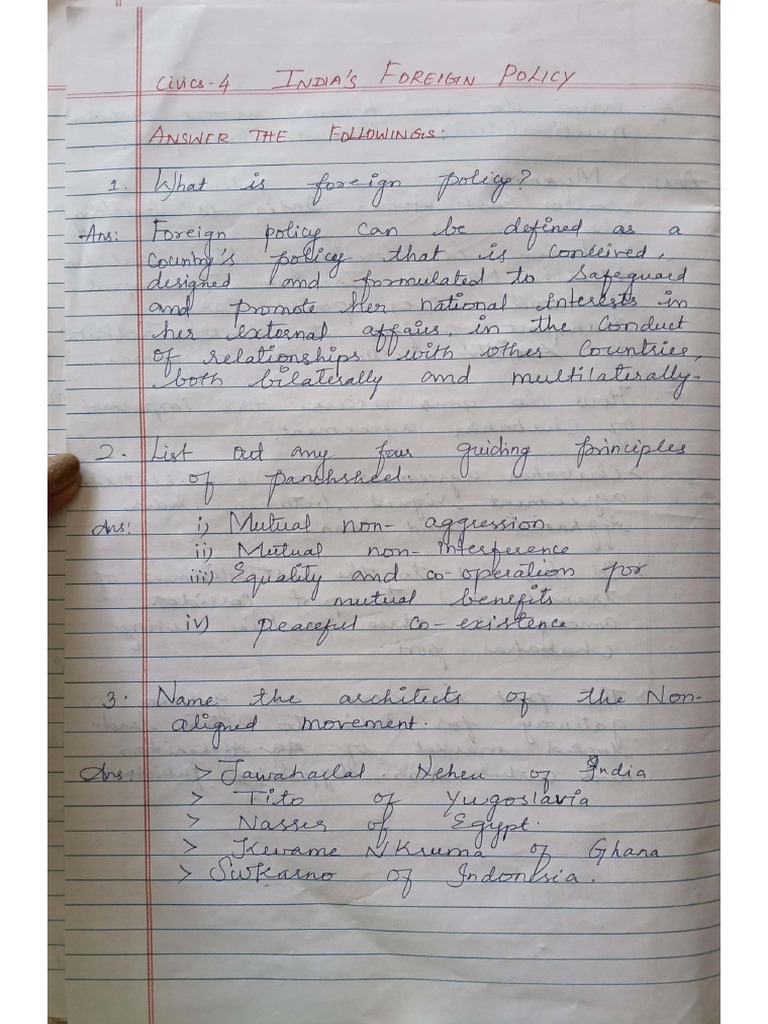 Civics-4 INDIA'S FOREIGN POLICY
ANSWER THE FOLLOWINGS:
1. What is foreign policy?
Ans: Foreign policy can be defined as a
Country's policy that is conceived,
designed and formulated to safeguard
and promote her national interests in
her external affairs, in the conduct
of relationships with other countries,
both bilaterally and multilaterally.
2. List out any four guiding principles
of panchsheel.
Ans: i) Mutual non-aggression
ii) Mutual non-interference
iii) Equality and co-operation for
mutual benefits
iv) peaceful co-existence
3. Name the architects of the Non-
aligned movement.
Ans: > Jawaharlal Nehru of India
> Tito of Yugoslavia
> Nasser of Egypt.
> Kewame NKruma of Ghana
> Sukarno of Indonesia.